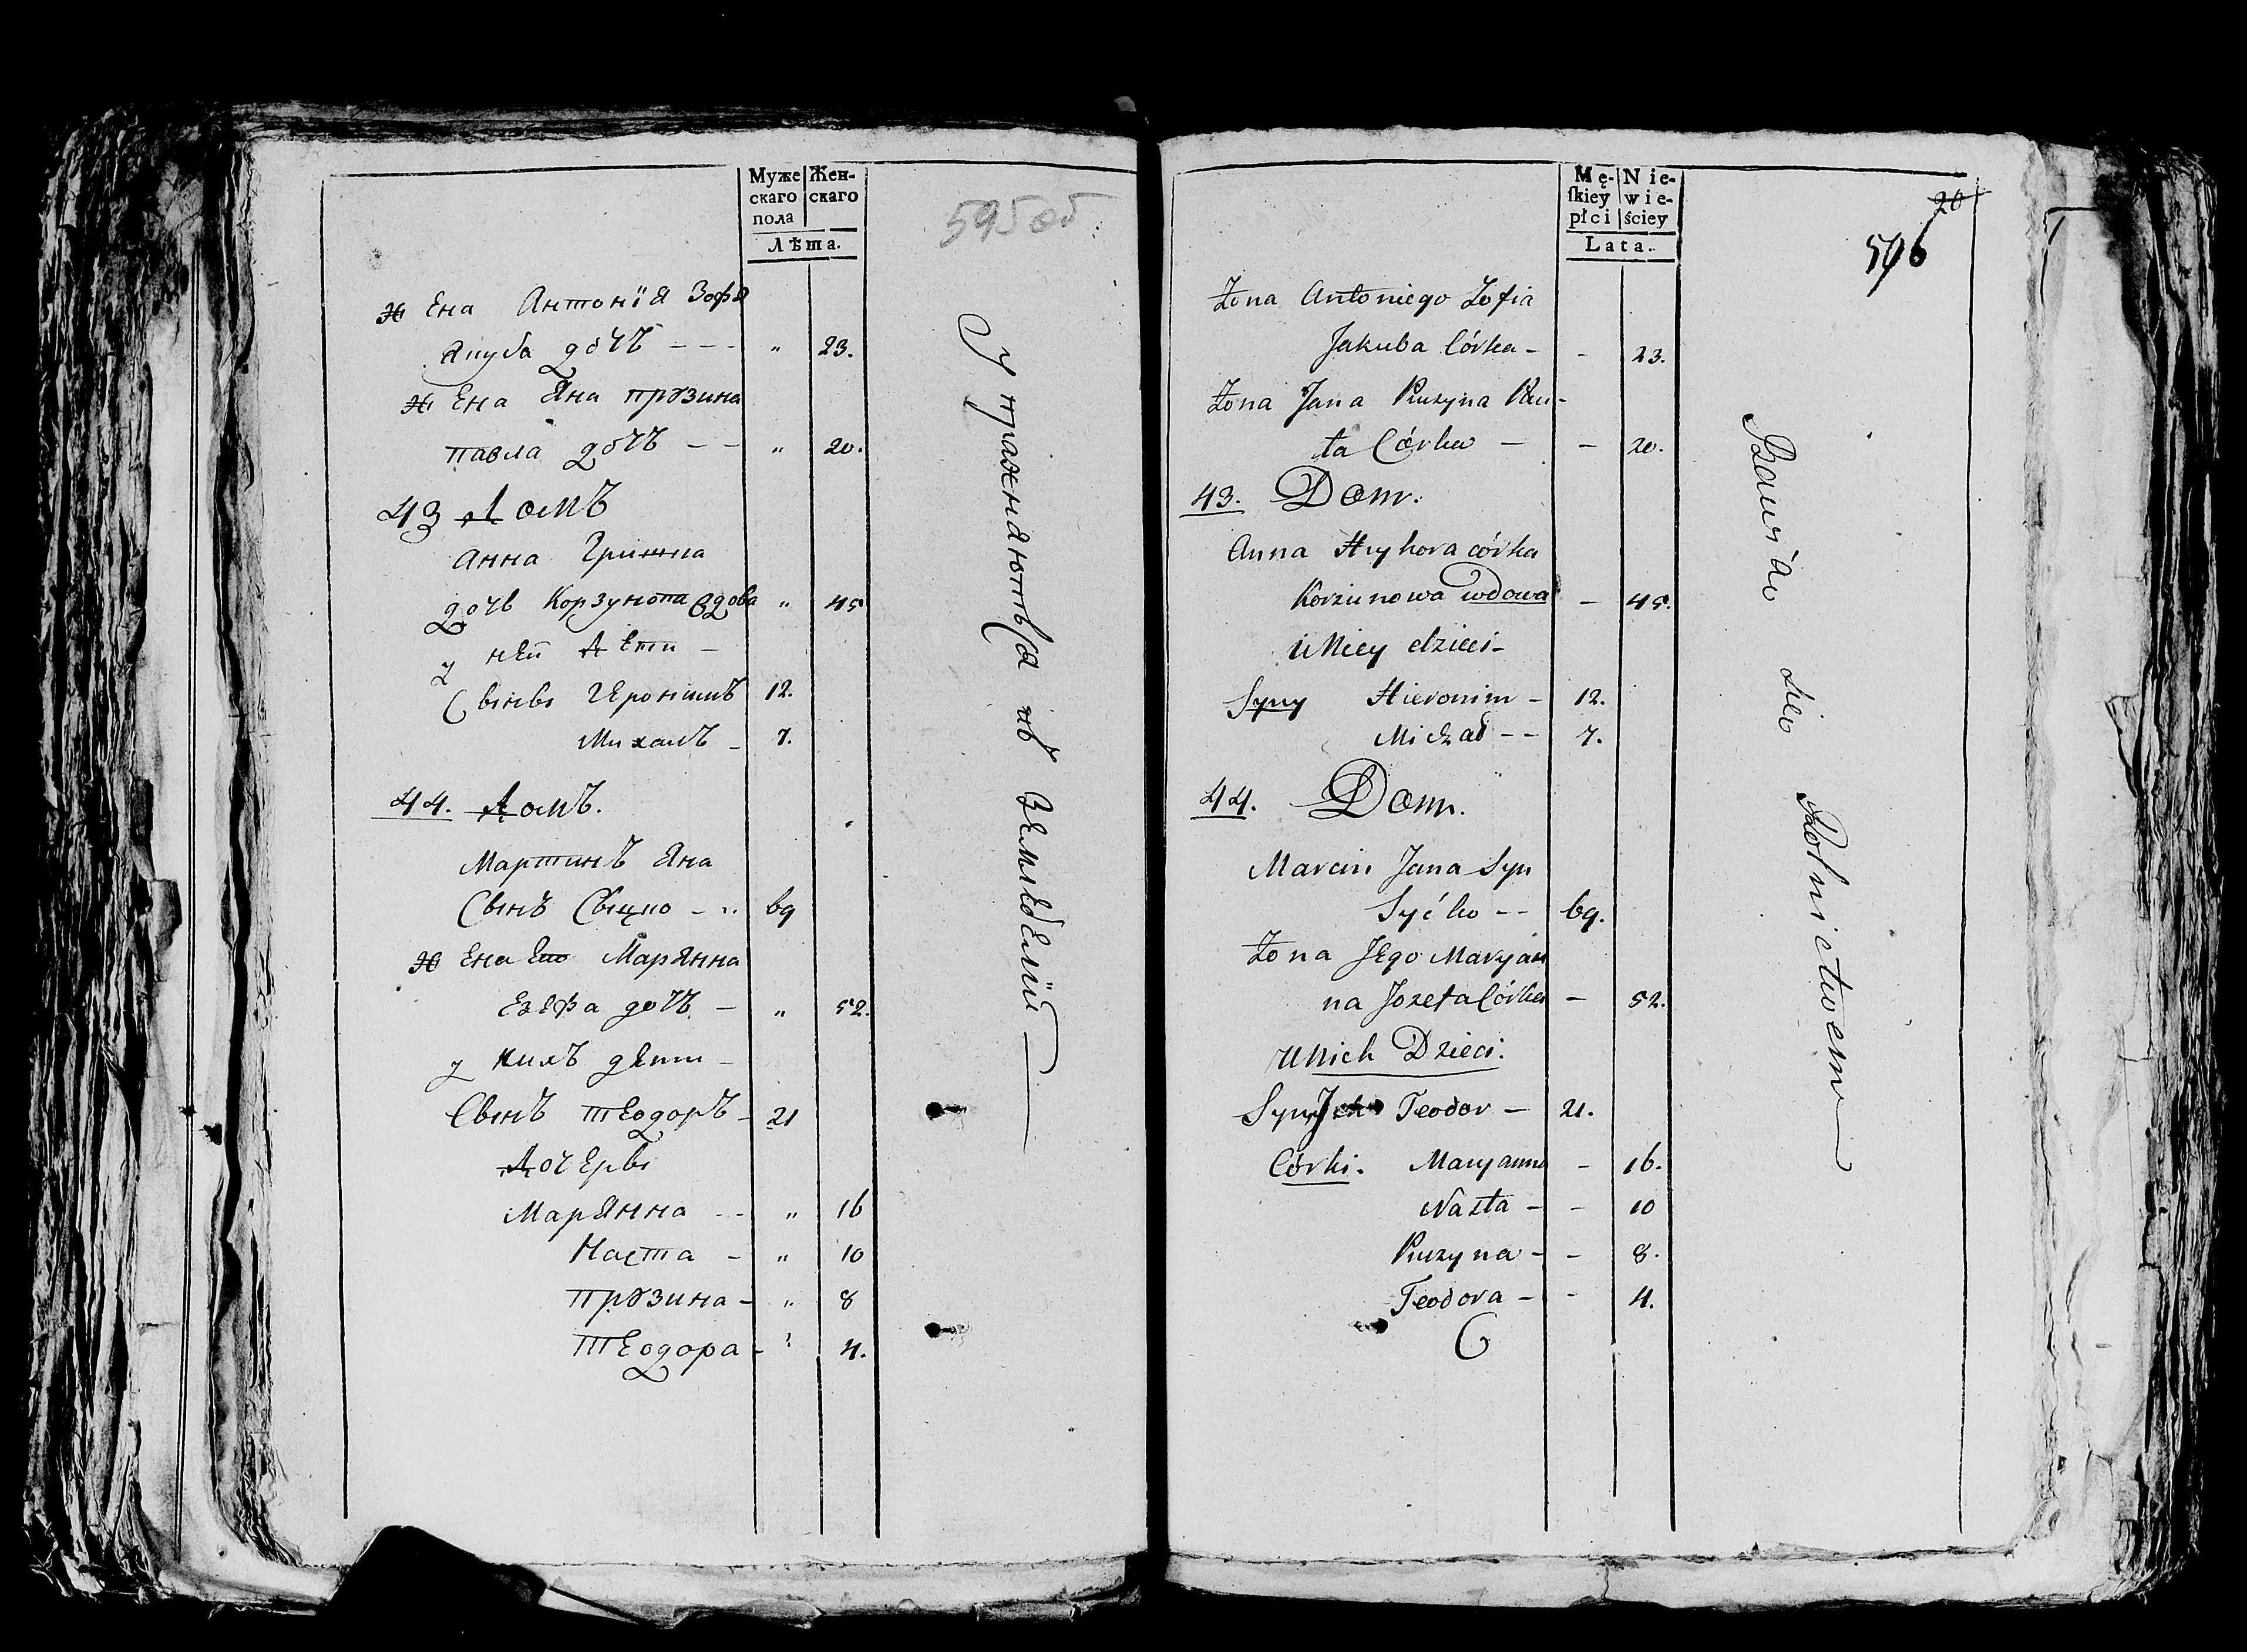 Муже
скаго
пола
Жен-
скаго
Лѣта.
595 об
Жена Антонія Зофя
Якуба дочъ - - - " 23.
Жена Яна Прузина
Павла дочъ - - " 20.
43 Домъ
Анна Гришка
дочь Корзунова вдова " 45
у ней дети -
Сыны Иеронимъ 12.
Михалъ - 7.
44. Домъ.
Мартинъ Яна
Сынъ Сыцко - .. 69
Жена Его Марянна
Езефа дочъ - " 52.
у нихъ дети -
Сынъ Теодоръ - 21
Дочеры
Марянна - - " 16
Наста - " 10
Прузина - " 8
Теодора - " 4.
Упражняются въ
Mę-
ſkiey
płci
Nie-
wie-
ściey
Lata.
20
596
Żona Antoniego Zofia
Jakuba Córka - - 23.
Żona Jana Pruzyna Paw-
ła Córka - - 20.
43. Dom.
Anna Hryhora córka
Korzunowa wdowa - 45.
U Niey dzieci -
Syny Hieronim - 12.
Michał - - 7.
44. Dom.
Marcin Jana Syn
Syćko - - 69.
Żona Jego Maryan
na Jozefa Córka - 52.
U Nich Dzieci.
Syn Teodor - 21.
Córki. Maryanna - 16.
Nasta - - 10
Pruzyna - - 8.
Teodora - - 4.
Bawią się Rolnictwem